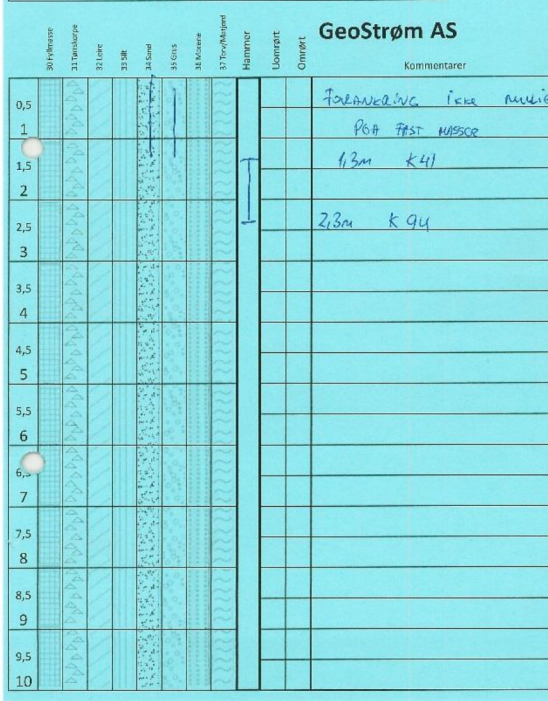 GeoStrøm AS
30 Fyllmasse
31 Tørrskorpe
32 Leire
33 Silt
34 Sand
35 Grus
36 Morene
37 Torv/Matjord
Hammer
Uomrørt
Omrørt
Kommentarer
0,5
1
1,5
2
2,5
3
3,5
4
4,5
5
5,5
6
6,
7
7,5
8
8,5
9
9,5
10
FORANKRING ikke
PGA FAST MASSER
1,3m K41
2,3m K94